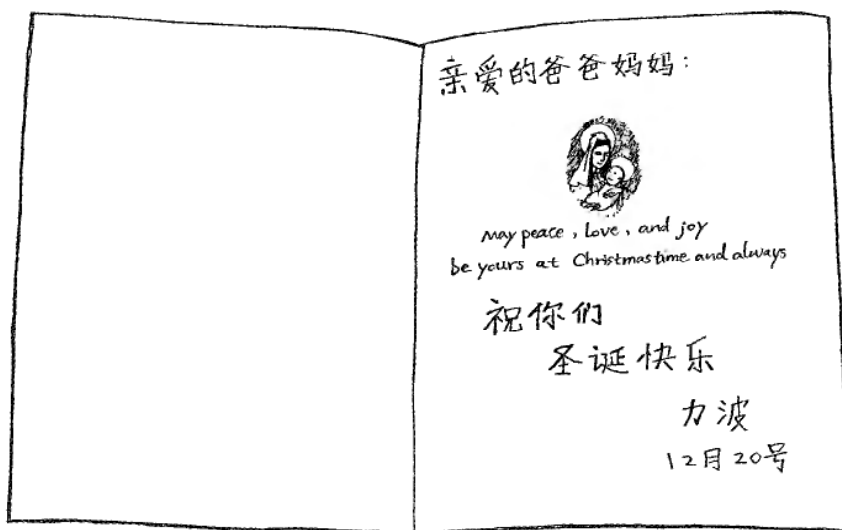 亲爱的爸爸妈妈：
May peace, Love, and joy
be yours at Christmastime and always
祝你们
圣诞快乐
力波
12月20号